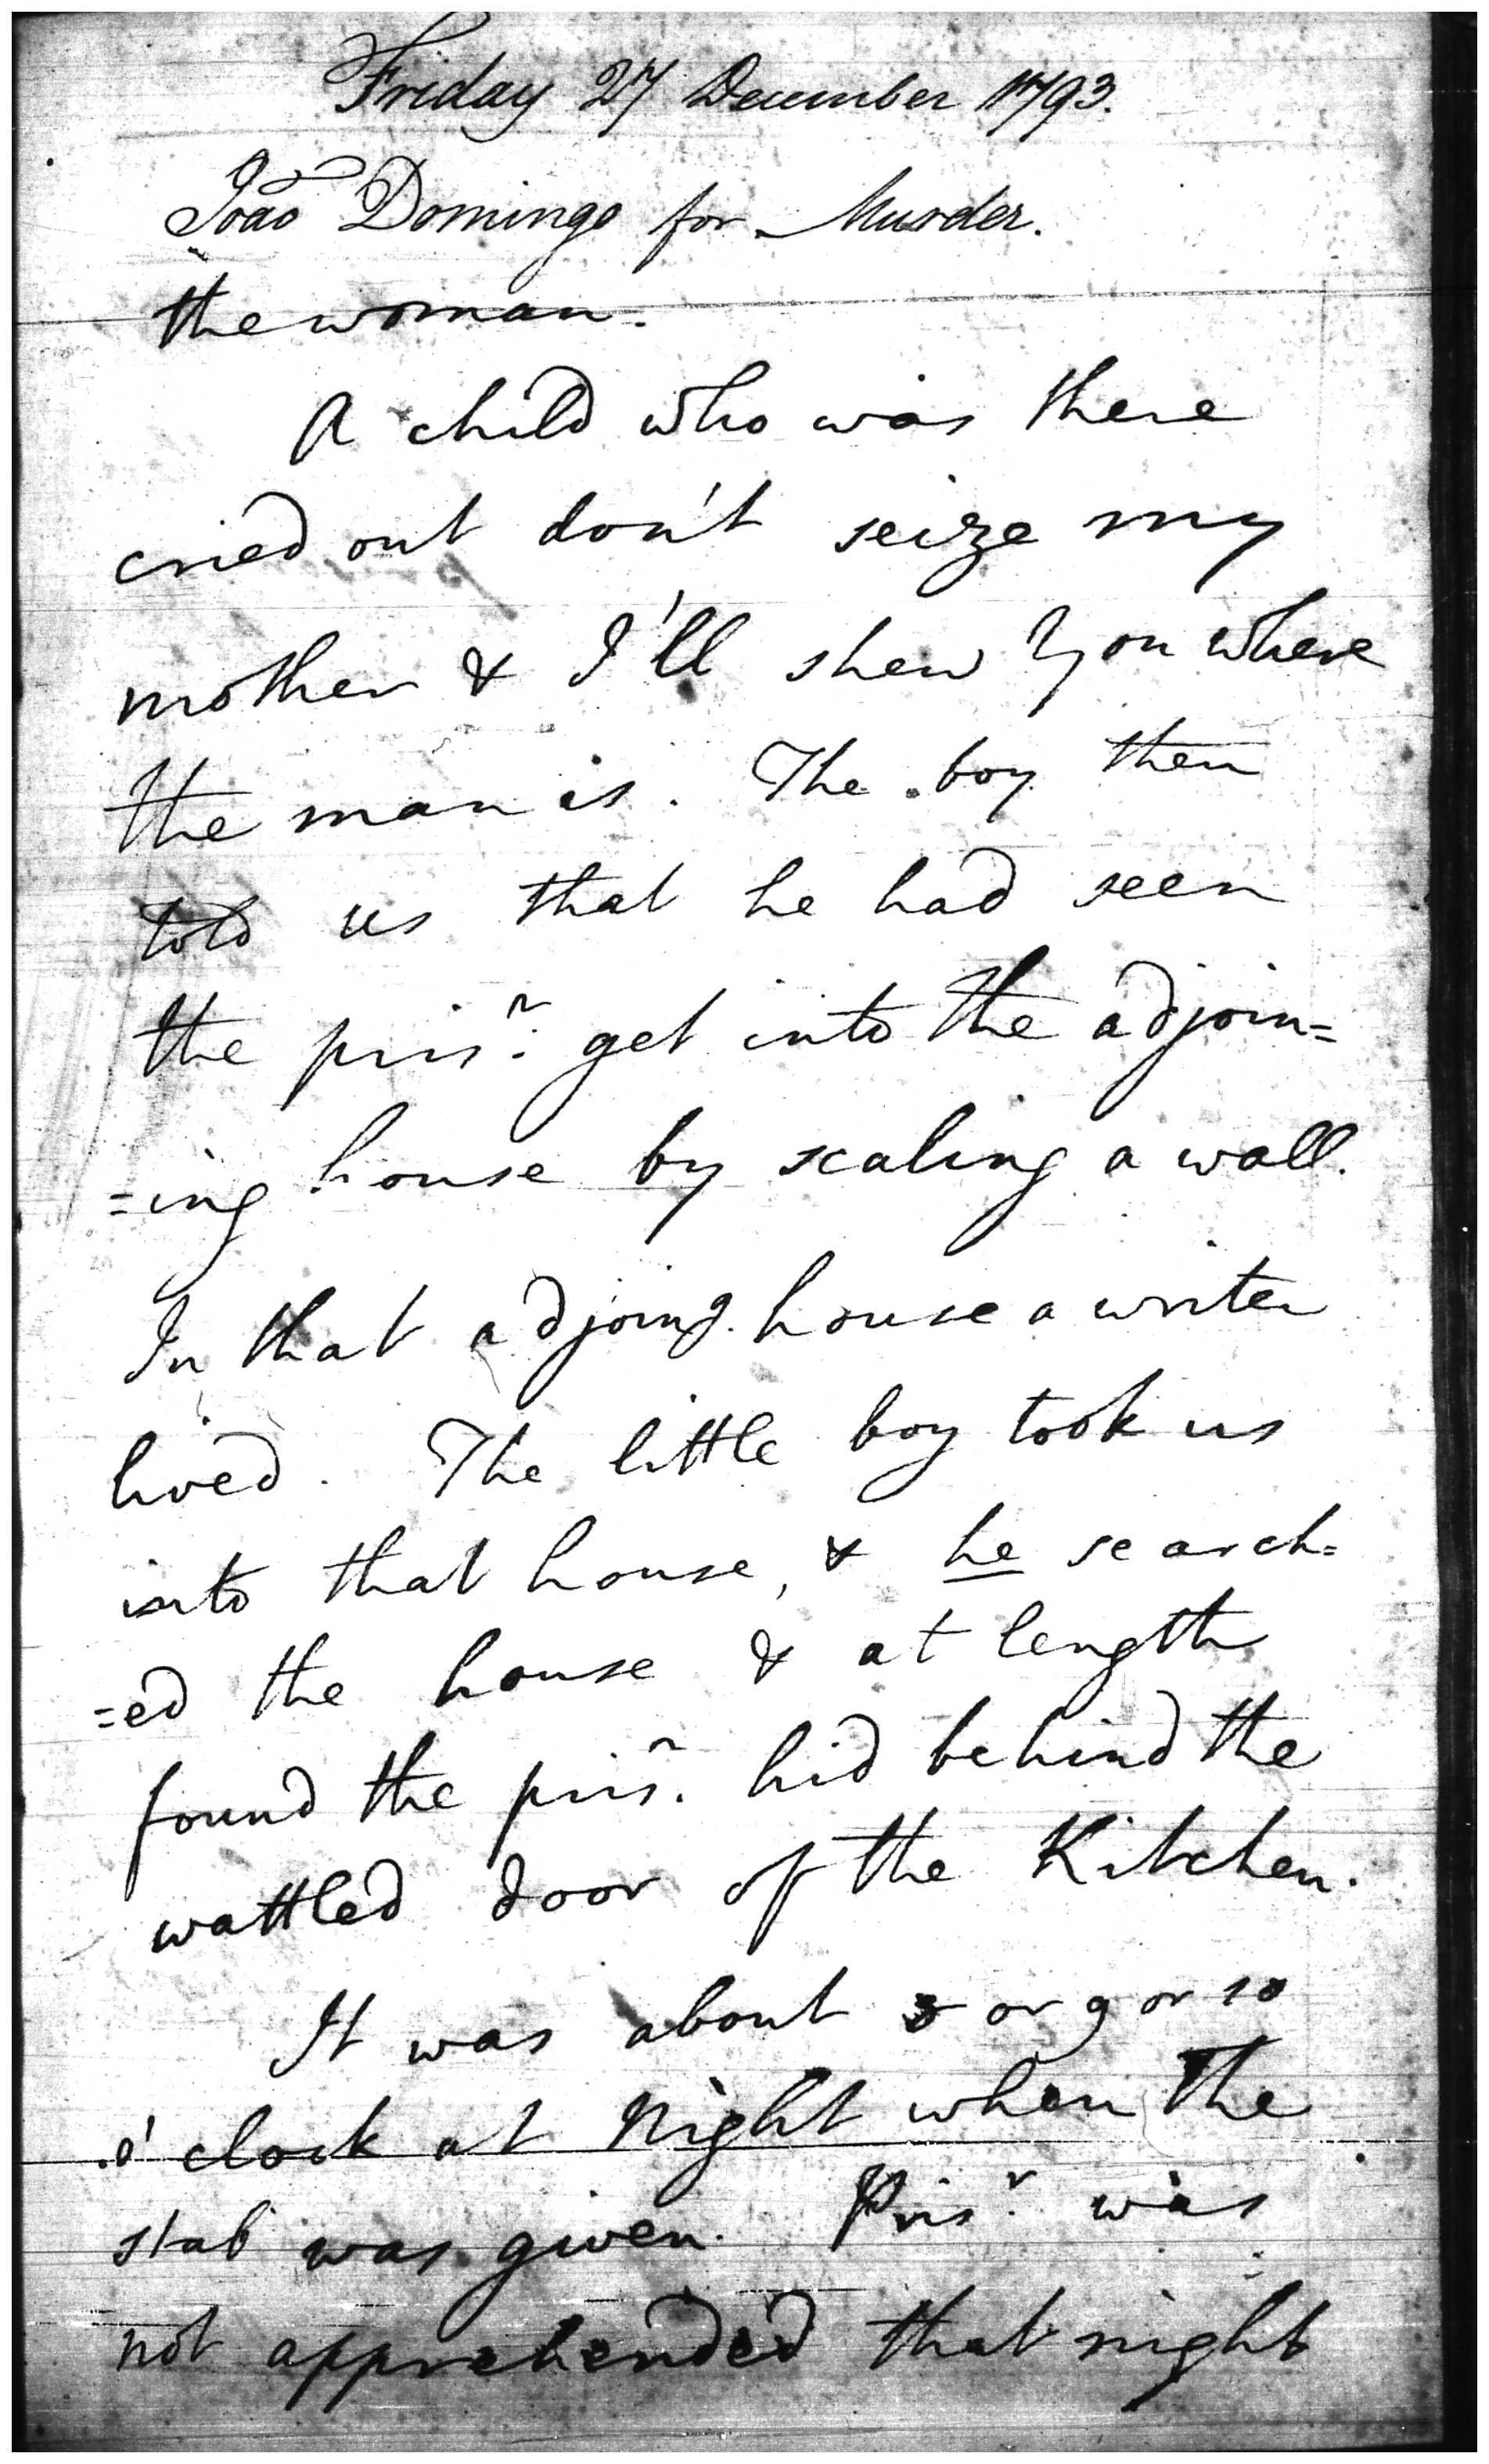 Friday 27 December 1793.
João Domingo for Murder.
the woman.
A child who was there
cried out don't seize my
mother & I'll shew You where
the man is. The boy then
told us that he had seen
the prisr. get into the adjoin=
=ing house by scaling a wall.
In that adjoing house a writer
lived. The little boy took us
into that house, & he search=
=ed the house & at length
found the prisr. hid behind the
wattled door of the Kitchen.
It was about 8 or 9 or 10
o'clock at Night when the
stab was given. Prisr. was
not apprehended that night